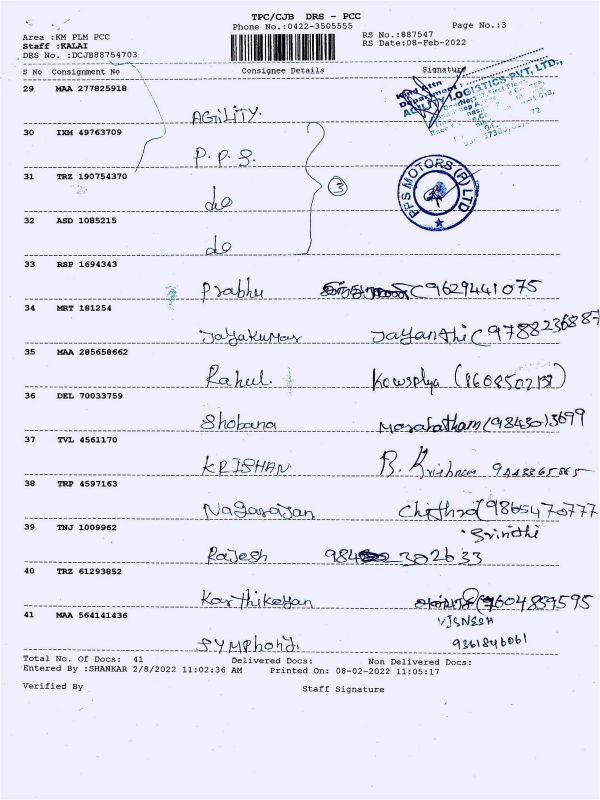 TPC/CJB DRS - PCC
Phone No.:0422-3505555
Page No.:3
Area :KM PLM PCC
RS No.:887547
Staff :KALAI
RS Date:08-Feb-2022
DRS No. :DCJB88754703
S No Consignment No Consignee Details Signature
29 MAA 277825918
AGILITY.
Kind Attn
Department :
AGILITY LOGISTICS PVT. LTD.,
30 IXM 49763709
P.P.S.
31 TRZ 190754370
do
3
PPS MOTORS (P) LTD
32 ASD 1085215
do
33 RSP 1694343
Prabhu 9629441075
34 MRT 181254
Jayakumar Jayanthi (9788236887
35 MAA 285658662
Rahul. Kowsalya
36 DEL 70033759
Shobana Marahatham (9843013699
37 TVL 4561170
KRISHAN R. Krishnan
38 TRP 4597163
Nagarajan Chithra (9865470777
39 TNJ 1009962
Srinidhi
Rajesh 984 302633
40 TRZ 61293852
Karthikeyan 9604859595
41 MAA 564141436
VIGNESH
SYMPhoNJ. 9361846061
Total No. Of Docs: 41 Delivered Docs: Non Delivered Docs:
Entered By :SHANKAR 2/8/2022 11:02:36 AM Printed On: 08-02-2022 11:05:17
Verified By Staff Signature